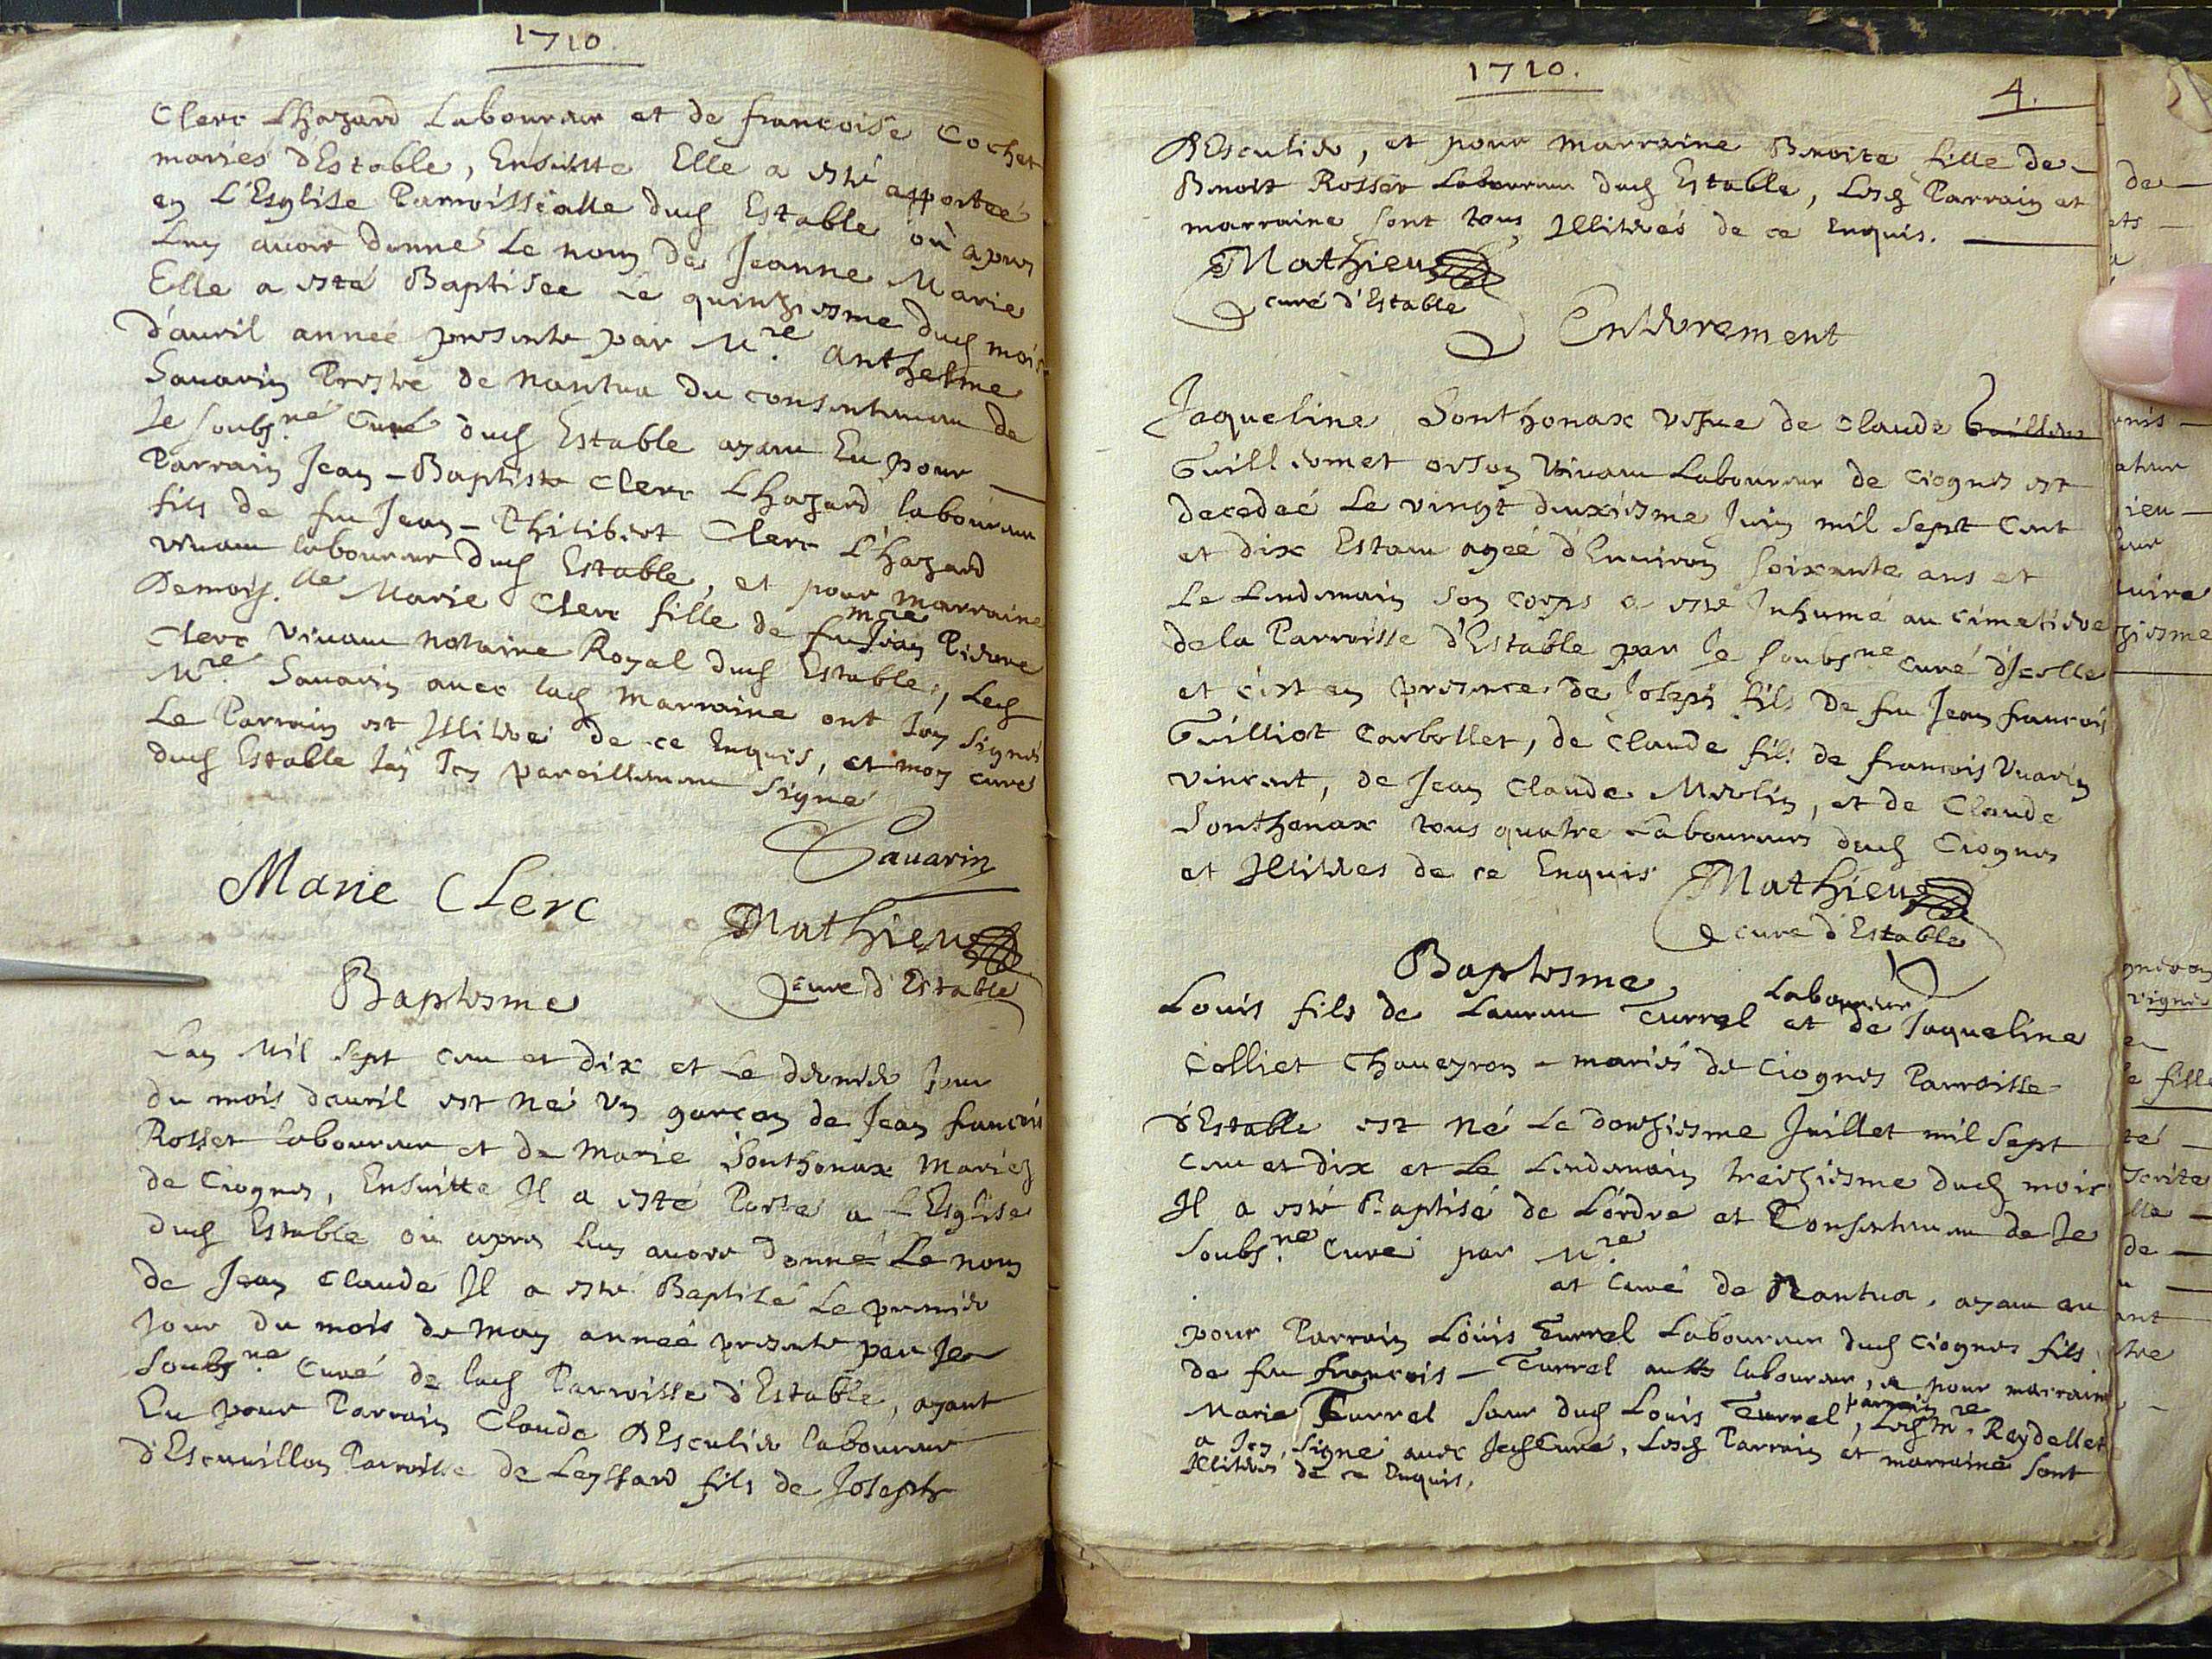 1710.
Clerc Lhazard Laboureur et de francoise Cochet
mariés d'Estable, Ensuitte Elle a esté apportée
en L'Esglise Parroissialle dud Estable où apres
Luy auoir donné Le nom de Jeanne Marie
Elle a esté Baptisée Le quinziesme dud mois
d'auril année presente par Mre. anthelme
Sauarin Prestre de nantua du consentement de
Je soubsné. Curé dud Estable ayant Eu pour
Parrain Jean-Baptiste Clerc Lhazard laboureur
fils de fu Jean-Philibert Clerc L'hazard
viuant laboureur dud Estable, et pour marraine
Demois.lle Marie Clerc fille de fu mre Jean Pierre
Clerc viuant nottaire Royal dud Estable, Led
Mre. Sauarin auec lad marraine ont Icy signés
Le Parrain est Illitéré de ce Enquis, et moy curé
dud Estable Jay Icy pareillement signé
Sauarin
Marie Clerc
Mathieu
curé d'Estable
Baptesme
Lan Mil sept cent et dix et Le dernier Jour
du mois dauril est né vn garçon de Jean francois
Rosset laboureur et de Marie Sonthonax Mariez
de Ciognes, Ensuitte Il a esté Porté a L'Esglise
dud Estable où apres luy auoir donné Le nom
de Jean Claude Il a esté Baptisé Le premier
Jour du mois de May année presente par Je
soubsné. Curé de lad Parroisse d'Estable, ayant
Eu pour Parrain Claude d'Escutier laboureur
d'Escuvillon Parroisse de Leyssard fils de Joseph
1710.
4.
d'Escutier, et pour marraine Benoite fille de
Benoit Rosset Laboureur dud Estable, Lesd Parrain et
marraine sont tous Illiterés de ce Enquis.
Mathieu
curé d'Estable
Enterrement
Jaqueline Sonthonax vefue de Claude
Guillermet orson viuant Laboureur de Ciognes est
decedeé Le vingt deuxiesme Juin mil sept Cent
et dix Estant ageé d'Enuiron soixante ans et
Le Lendemain son corps a esté Inhumé au Cimetiere
de la Parroisse d'Estable par Je soubsne. curé d'Icelle
et c'est en presence de Joseph fils de fu Jean francois
Guilliot Carbollet, de Claude fils de francois Vuarin
Vincent, de Jean Claude Merlin, et de Claude
Sonthonax tous quatre Laboureurs dud Ciognes
et Illiteres de ce Enquis Mathieu
curé d'Estable
Baptesme
Laboureur
Louis fils de Laurent Turrel et de Jaqueline
Colliet Chaueyron - mariés de Ciognes Parroisse
d'Estable est né Le douziesme Juillet mil sept
Cent et dix et Le Lendemain treiziesme dud mois
Il a esté Baptisé de L'ordre et Consentement de Je
soubs.né Curé par Mre.
et Curé de Nantua, ayant eu
pour Parrain Louis Turrel Laboureur dud Ciognes fils
de fu francois - Turrel aussy laboureur, et pour marraine
Marie Turrel sœur dud Louis Turrel parrain, Led Mre. Reydellet
a Icy signé auec Jed Curé, Lesd Parrain et marraine sont
Illiteres de ce Enquis.